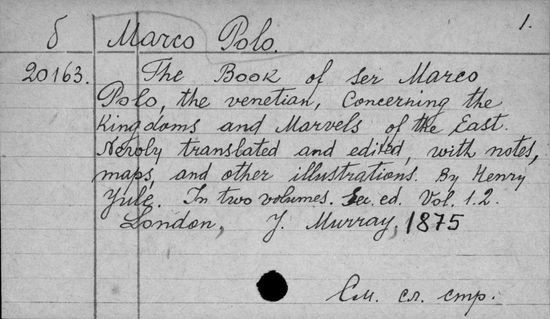 б Marco Polo. 1.
20163. The Book of ser Marco
Polo, the venetian, Concerning the
Kingdoms and Marvels of the East.
Newly translated and edited, with notes,
maps, and other illustrations. By Henry
Yule. In two volumes. Sec. ed. Vol. 1.2.
London, J. Murray, 1875
См. сл. стр.